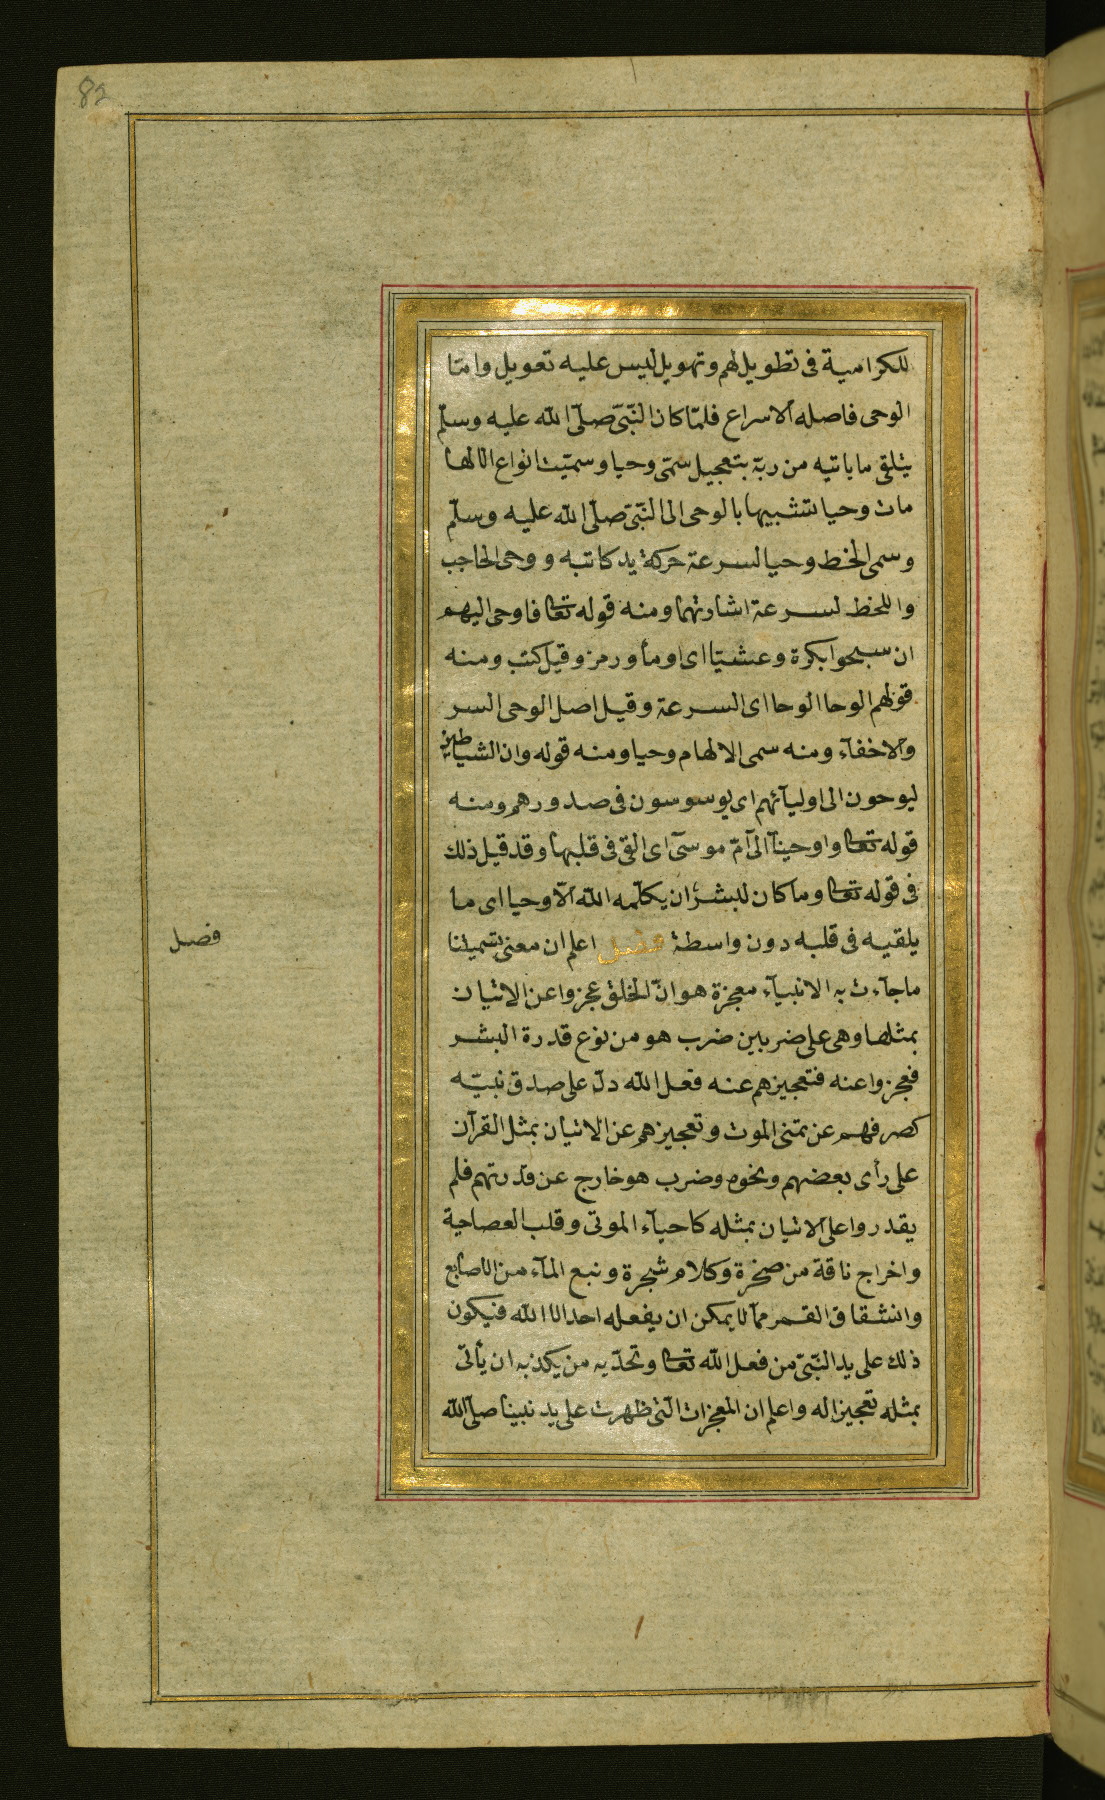 82
للكرامية فى تطويل لهم وتهويل ليس عليه تعويل وامّا
الوحى فاصله الاسراع فلمّا كان النّبىّ صلّى الله عليه وسلّم
يتلقى ما ياتيه من ربّه بتعجيل سمّى وحيا وسميّت انواع الالها
مات وحيا تشبيها بالوحى الى النّبىّ صلّى الله عليه وسلّم
وسمى الخط وحيا لسرعة حركة يد كاتبه ووحى الحاجب
واللحظ لسرعة اشارتهما ومنه قوله تعا فاوحى اليهم
ان سبحوا بكرة وعشيّا اى اومأ ورمز وقيل كتب ومنه
قولهم الوحا الوحا اى السرعة وقيل اصل الوحى السر
والاخفآء ومنه سمى الالهام وحيا ومنه قوله وان الشياطين
ليوحون الى اوليآئهم اى يوسوسون فى صدورهم ومنه
قوله تعا واوحينآ الى آمّ موسى اى القى فى قلبها وقد قيل ذلك
فى قوله تعا وما كان لبشر ان يكلّمه الله الّا وحيا اى ما
يلقيه فى قلبه دون واسطة فصل اعلم ان معنى تسميتنا
فصل
ماجآءت به الانبيآء معجزة هو انّ الخلق عجزوا عن الاتيان
بمثلها وهى على ضربين ضرب هو من نوع قدرة البشر
فعجزوا عنه فتعجيزهم عنه فعل الله دلّ على صدق نبيّه
كصرفهم عن تمنى الموت وتعجيزهم عن الاتيان بمثل القرآن
على رأى بعضهم ونحوه وضرب هو خارج عن قدرتهم فلم
يقدروا على الاتيان بمثله كاحيآء الموتى وقلب العصاحية
واخراج ناقة من صخرة وكلام شجرة ونبع المآء من الاصابع
وانشقاق القمر ممّا لا يمكن ان يفعله احد الا الله فيكون
ذلك على يد النّبىّ من فعل الله تعا وتحدّيه من يكذبه ان يأتى
بمثله تعجيزا له واعلم ان المعجزات الّتى ظهرت على يد نبينا صلّى الله